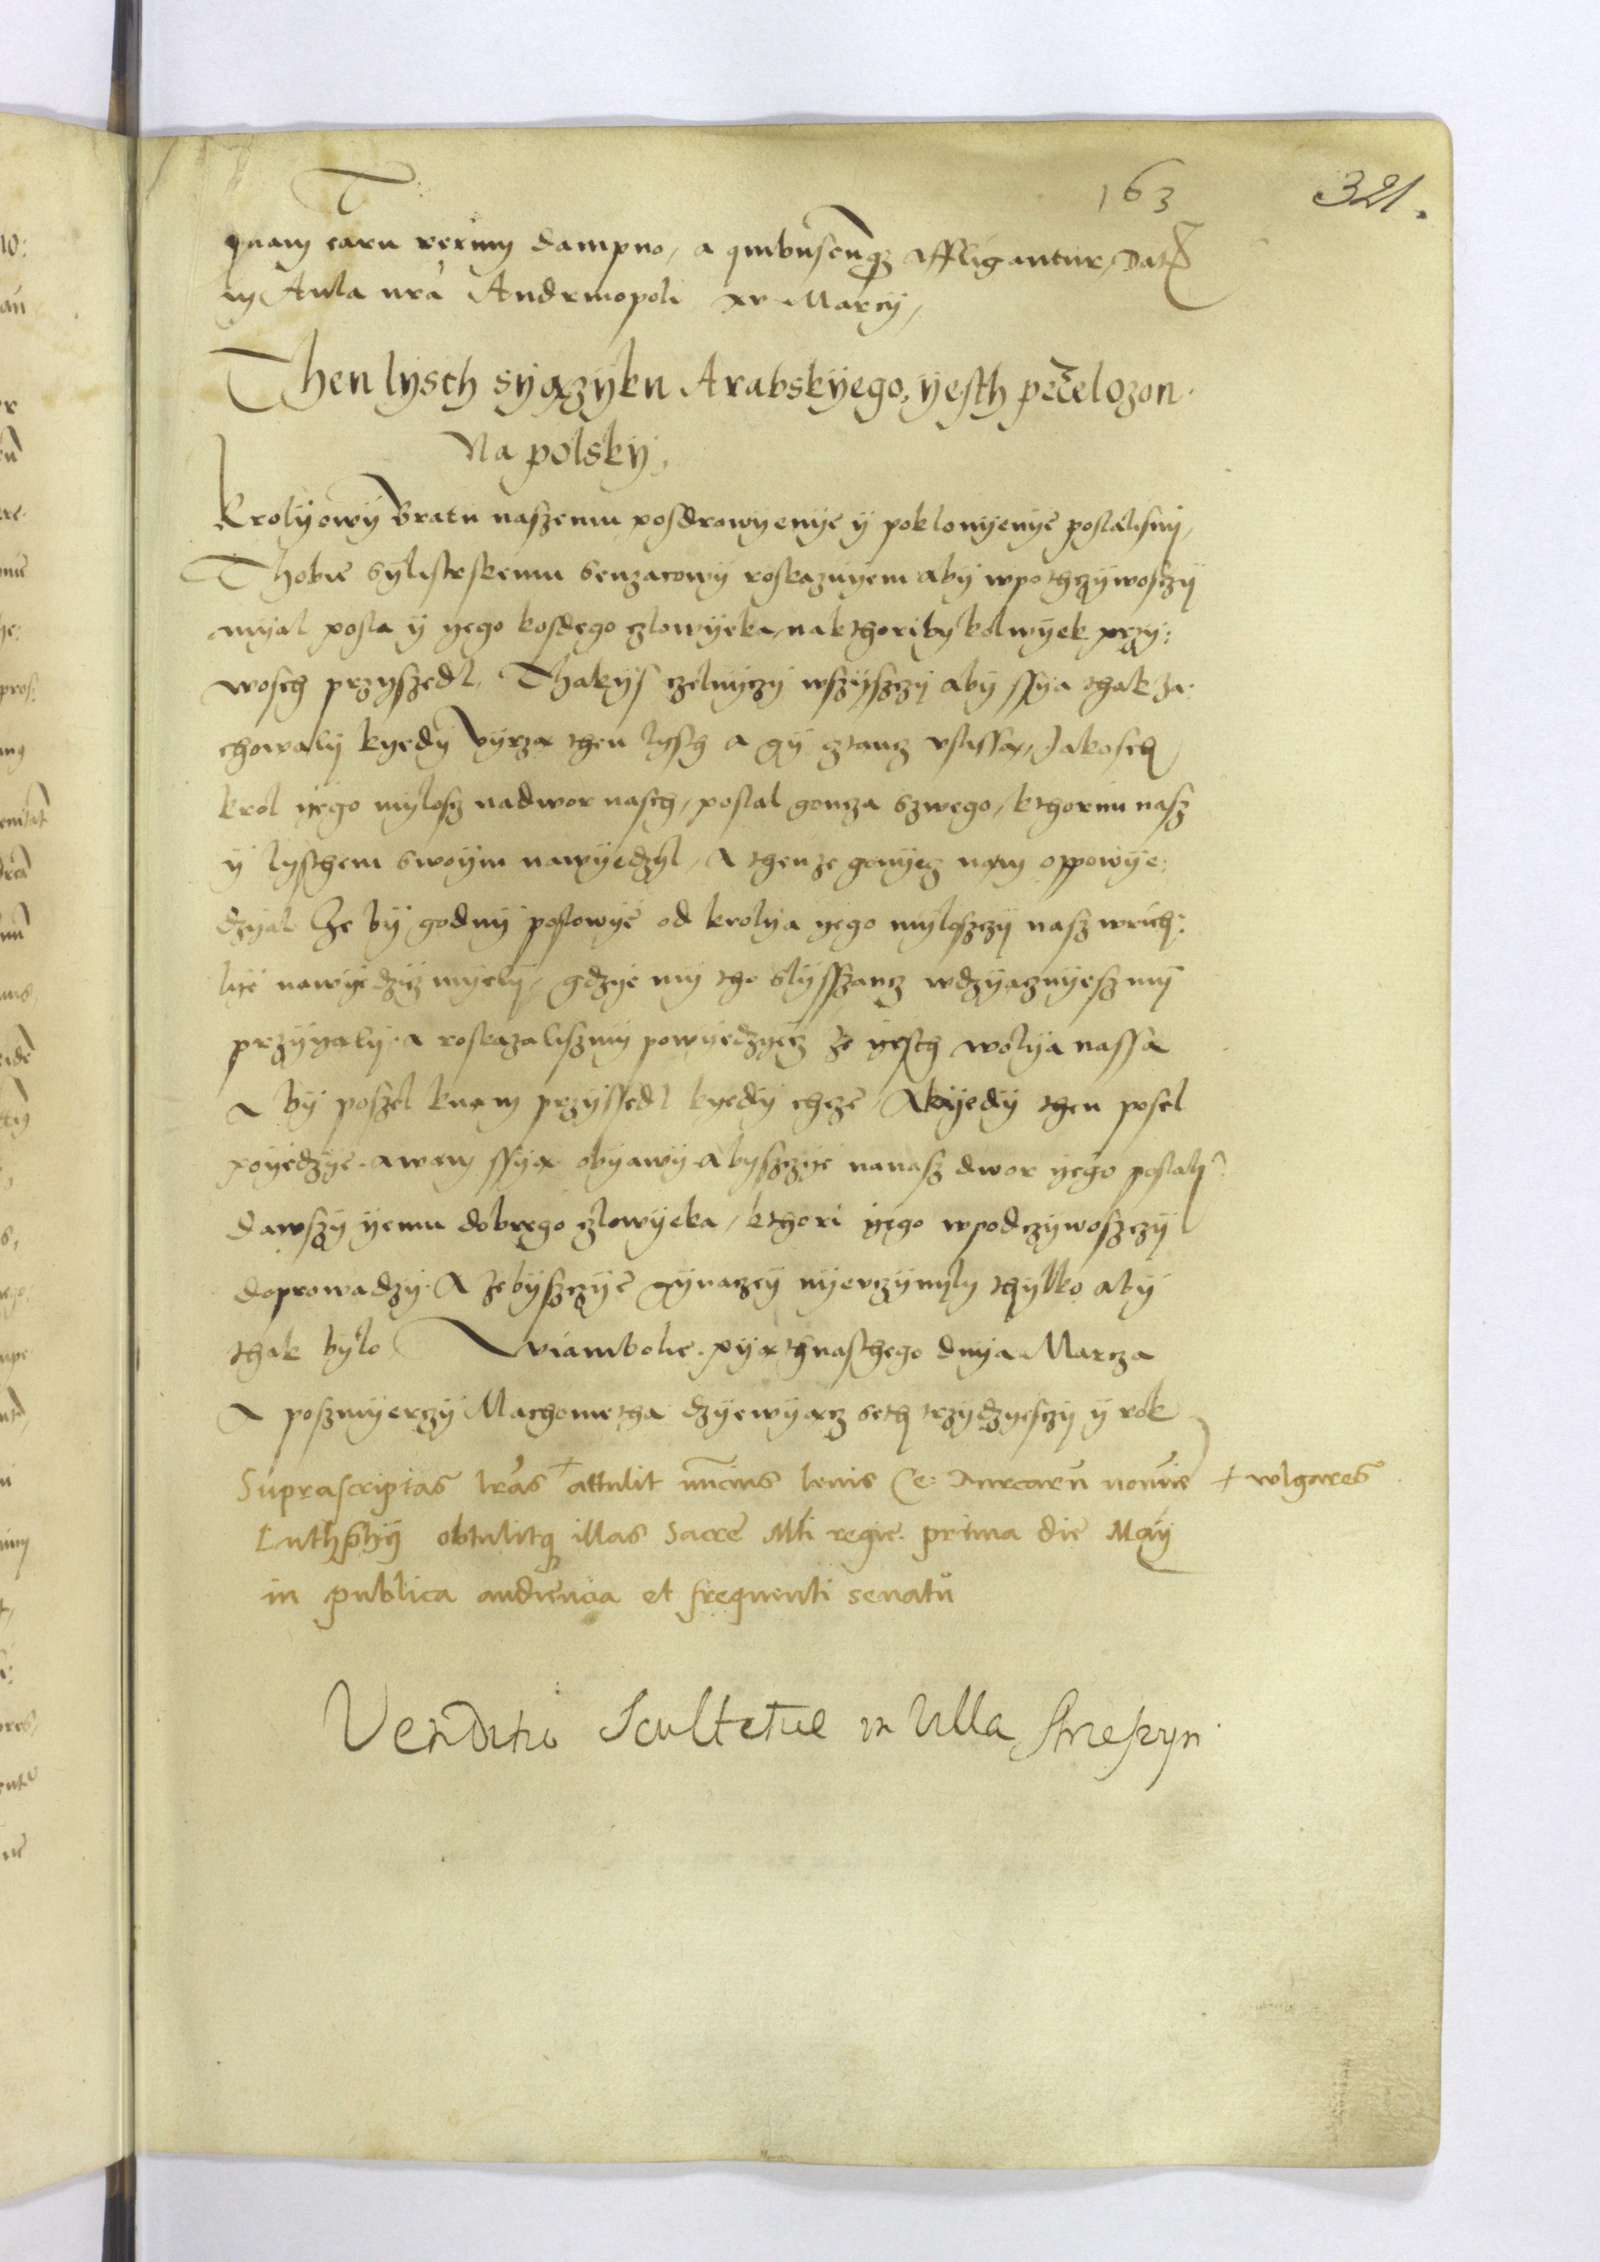 163
321.
quam earu rerum dampno, a quibuscunq affligantur, Dat
in Aula nra Andrinopoli xv Marcy,
Then lysth syązyku Arabskyego, yesth przelozon
Na polsky,
Krolyowy Bratu naszemu posdrowyenye y poklonyenye poslalismy,
Thobie Sylistrskemu Senzacowy roskazuyem aby wpothczywosczy
myal posla y yego kosdego czlowyeka, nakthoriby kolwyek przy:
wosth przyszedl, Thakys czelnyczy wszyszczy aby ssya thak za:
chowaly kyedy vyrzą then lysth a gy cztancz uslissą, Jakosch
krol yego mylosz nadwor nasch, poslal goncza szwego, kthorim nasz
y lysthem swoym nawyedzyl, A thenze gonyecz nam oppowye:
dzyal Ze by godny poslowye od krolya yego mylosczy nasz wrich:
lye nawyedzycz myely, gdzye my tho slysszancz wdzyacznyeszmy
przyyaly. a roskazaliszmy powyedzyecz ze yesth wolya nassa
A by poszel knam przyssedl kyedy chcze, A kyedy then posel
poyedzye. awam ssyą obyawy. abysczye nanasz dwor yego poslaly
dawszy yemu dobrego czlowyeka, kthori yego wpodczywoszczy
doprowadzy. A zebyszczye ynaczey nyeuczynyly thylko aby
thak bylo Wiambolie. pyąthnasthego dnya Marcza
A poszmyerczy Machometha dzyewyącz seth trzydzyesczy y rok
Suprascriptas lras + attulit nucius levis Ce: Turcaru nomie + wlgares
Luthphy obtulitq illas Sacre Mti regie. prima die May
in publica audiencia et frequenti senatu
Venditio Scultetie in Villa